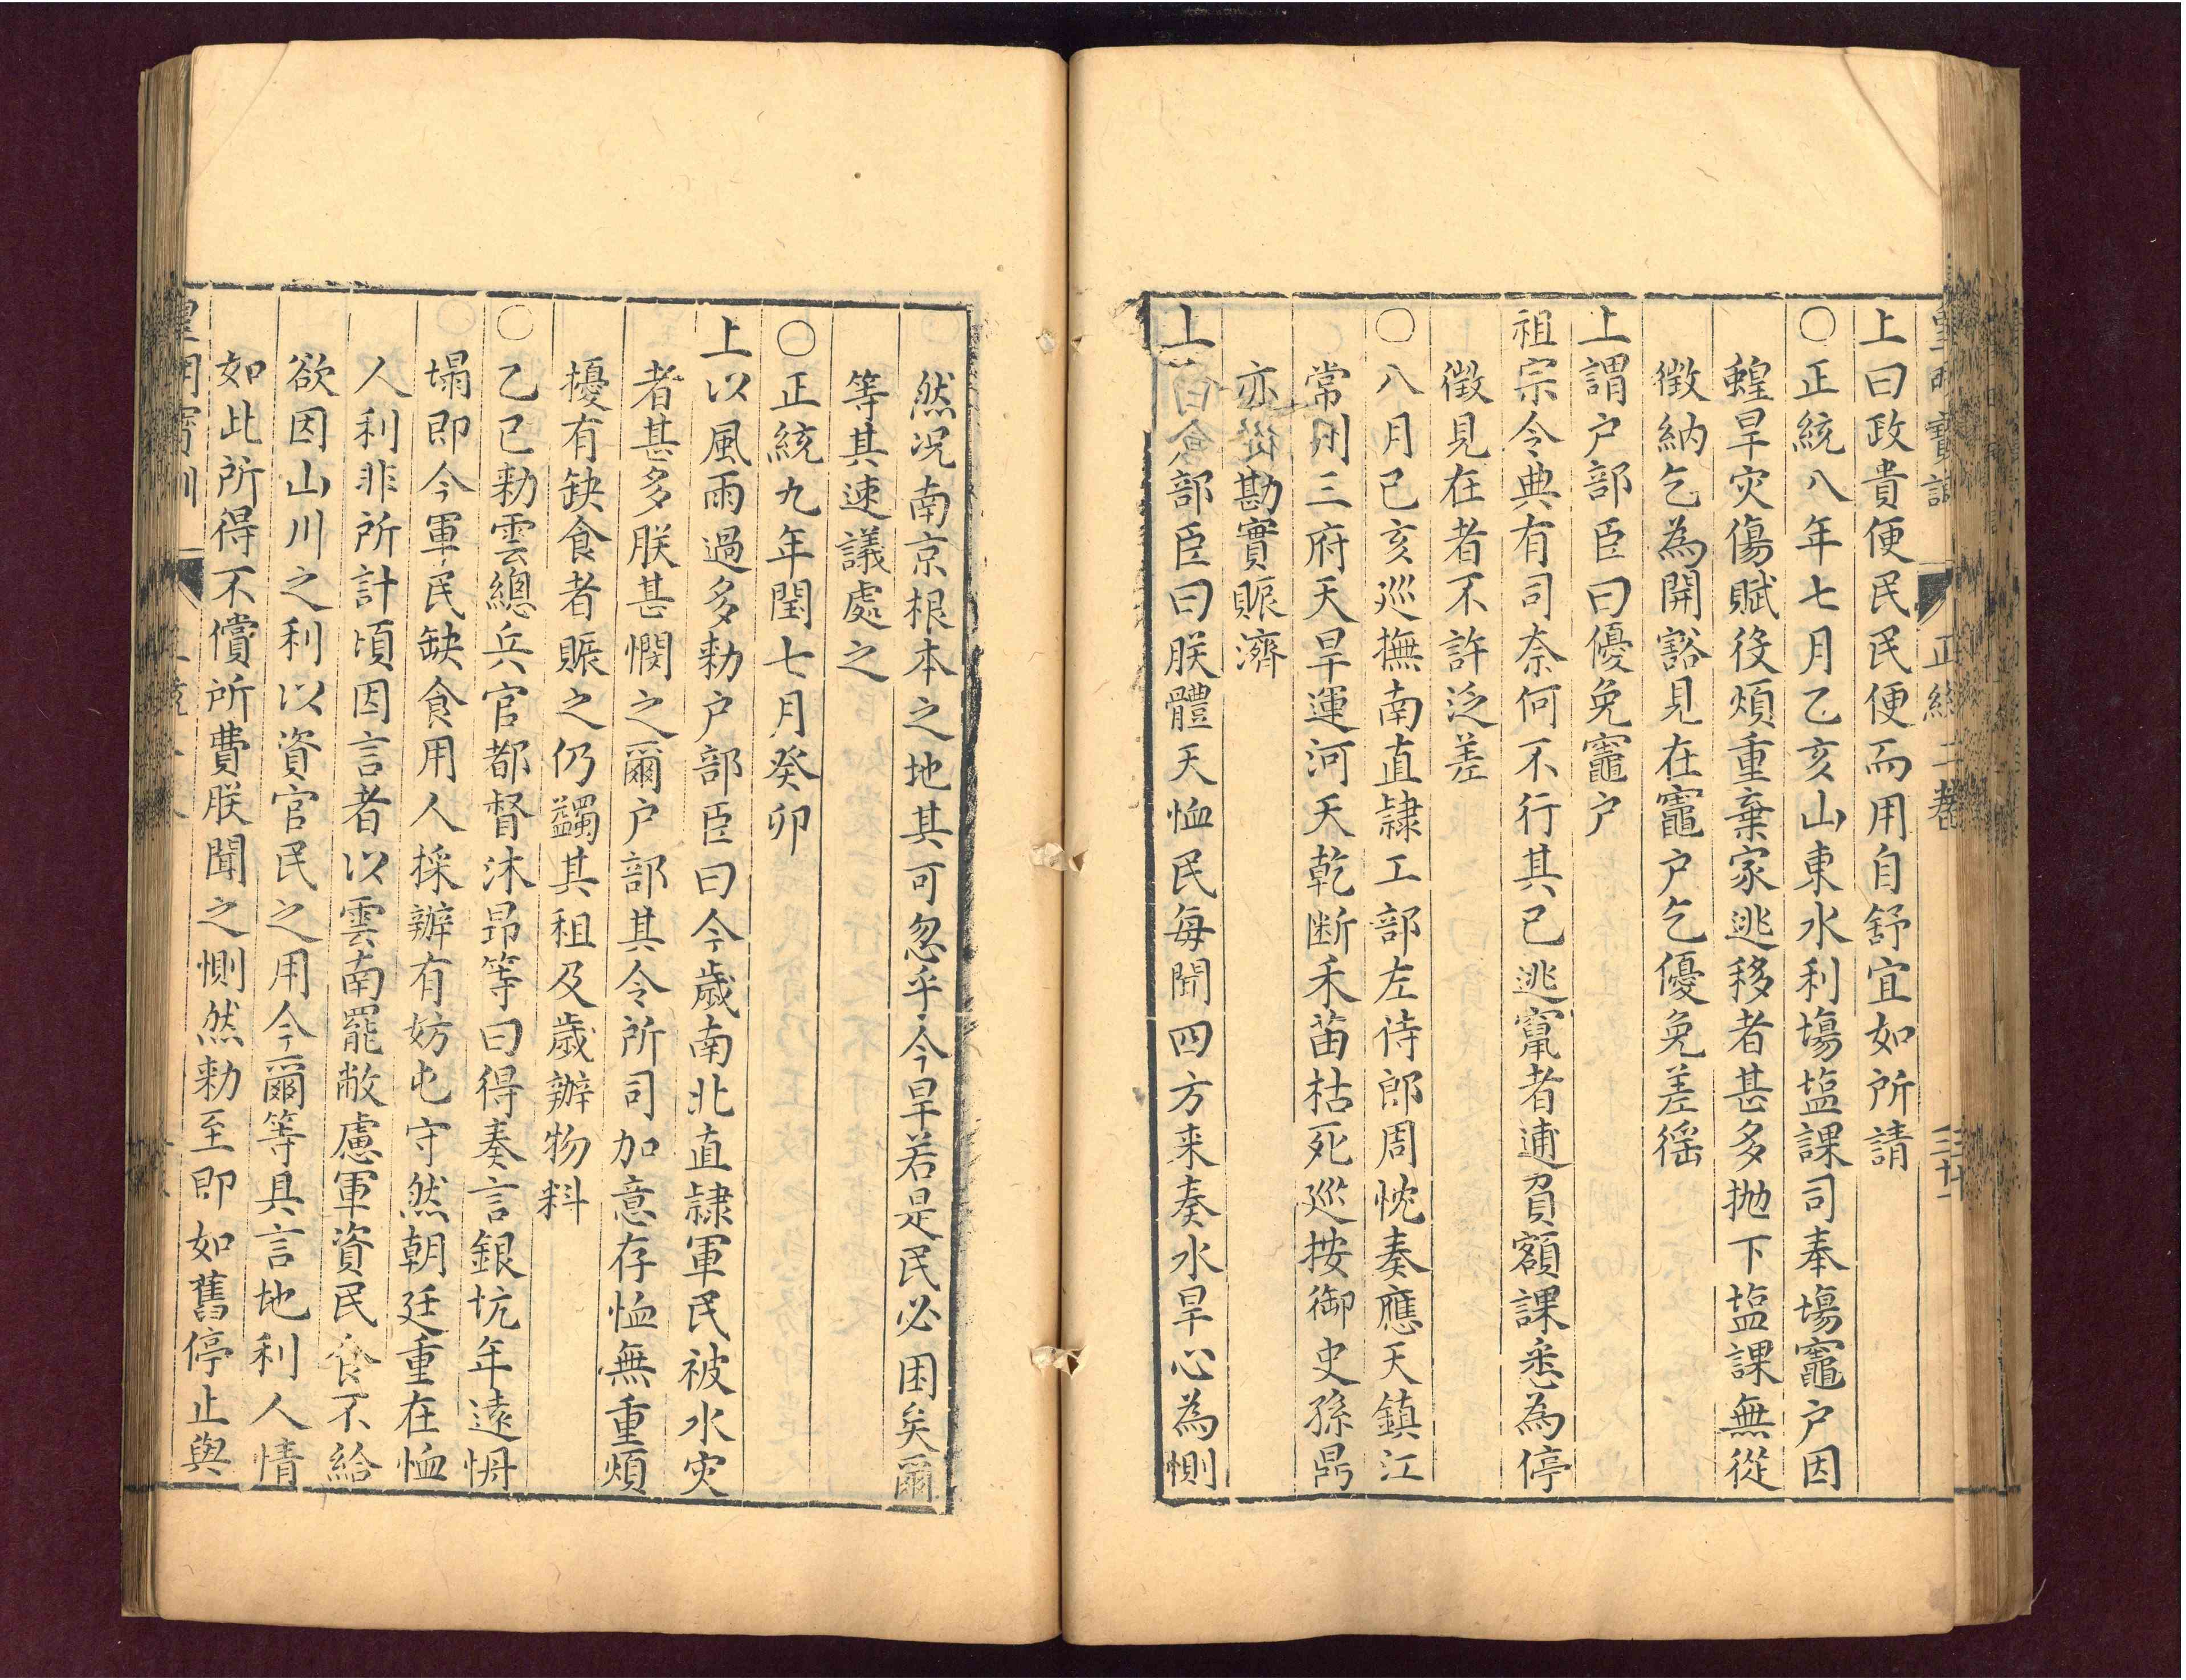 皇明寶訓 正統二卷 三十
上曰政貴便民民便而用自舒宜如所請
○正統八年七月乙亥山東水利塲塩課司奉塲竈户因
蝗旱灾傷賦役煩重棄家逃移者甚多抛下塩課無從
徴納乞為開豁見在竈户乞優免差徭
上謂户部臣曰優免竈户
祖宗令典有司奈何不行其已逃竄者逋負額課悉為停
徴見在者不許泛差
○八月己亥巡撫南直隷工部左侍郎周忱奏應天鎮江
常州三府天旱運河天乾断禾苗枯死巡按御史孫鼎
亦從勘實賑濟
上部臣曰朕體天恤民每聞四方来奏水旱心為惻
然况南京根本之地其可忽乎今旱若是民必困矣爾
等其速議處之
○正統九年閏七月癸卯
上以風雨過多勑户部臣曰今歲南北直隷軍民被水灾
者甚多朕甚憫之爾户部其令所司加意存恤無重煩
擾有缺食者賑之仍蠲其租及歲辦物料
○乙巳勑雲總兵官都督沐昂等曰得奏言銀坑年遠坍
塌即今軍民缺食用人採辦有妨屯守然朝廷重在恤
人利非所計頃因言者以雲南罷敝慮軍資民食不給
欲因山川之利以資官民之用今爾等具言地利人情
如此所得不償所費朕聞之惻然勑至即如舊停止與
皇明寶訓